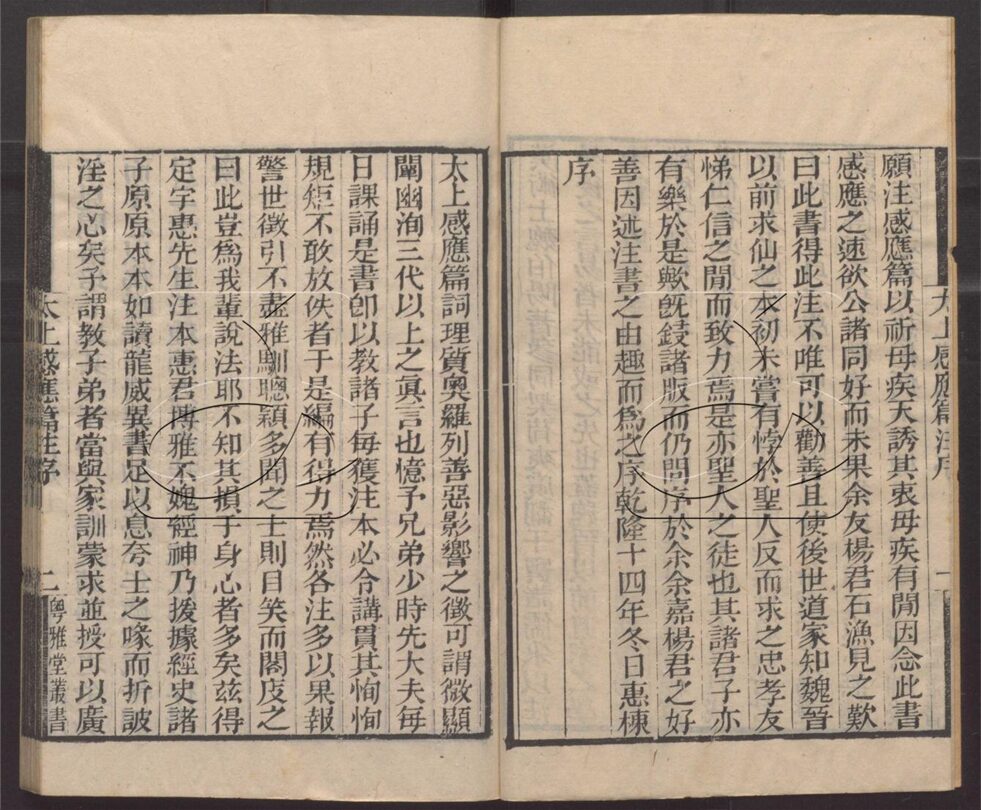 願注感應篇以祈母疾天誘其衷母疾有閒因念此書
感應之速欲公諸同好而未果余友楊君石漁見之歎
曰此書得此注不唯可以勸善且使後世道家知魏晉
以前求仙之本初未嘗有悖於聖人反而求之忠孝友
悌仁信之閒而致力焉是亦聖人之徒也其諸君子亦
有樂於是歟旣鋟諸版而仍問序於余余嘉楊君之好
善因述注書之由趣而爲之序乾隆十四年冬日惠棟
序
太上感應篇注序
一
太上感應篇詞理質奧羅列善惡影響之徵可謂微顯
闡幽洵三代以上之眞言也憶予兄弟少時先大夫每
日課誦是書卽以教諸子每獲注本必令講貫其恂恂
規矩不敢放佚者于是編有得力焉然各注多以果報
警世徵引不盡雅馴聰穎多聞之士則目笑而閣庋之
曰此豈爲我輩說法耶不知其損于身心者多矣茲得
定宇惠先生注本惠君博雅不媿經神乃援據經史諸
子原原本本如讀龍威異書足以息夸士之喙而折詖
淫之心矣予謂教子弟者當與家訓蒙求並授可以廣
太上感應篇注序
二
粤雅堂叢書